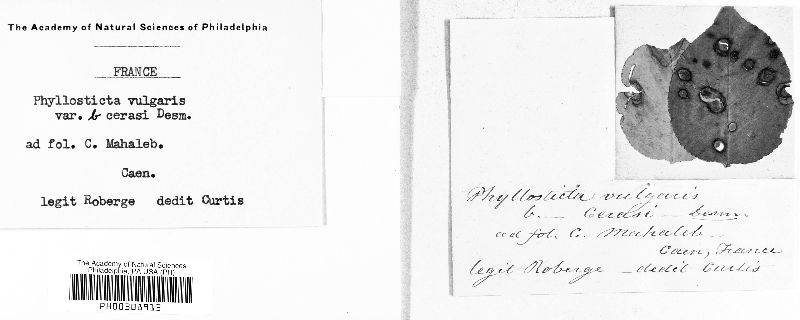 The Academy of Natural Sciences of Philadelphia
FRANCE
Phyllosticta vulgaris
var. b cerasi Desm.
ad fol. C. Mahaleb.
Caen.
legit Roberge dedit Curtis
The Academy of Natural Sciences
Philadelphia, PA USA (PH)
Phyllosticta vulgaris
b. — Cerasi — Desm.
ad fol. C. Mahaleb —
Caen, France
legit Roberge — dedit Curtis